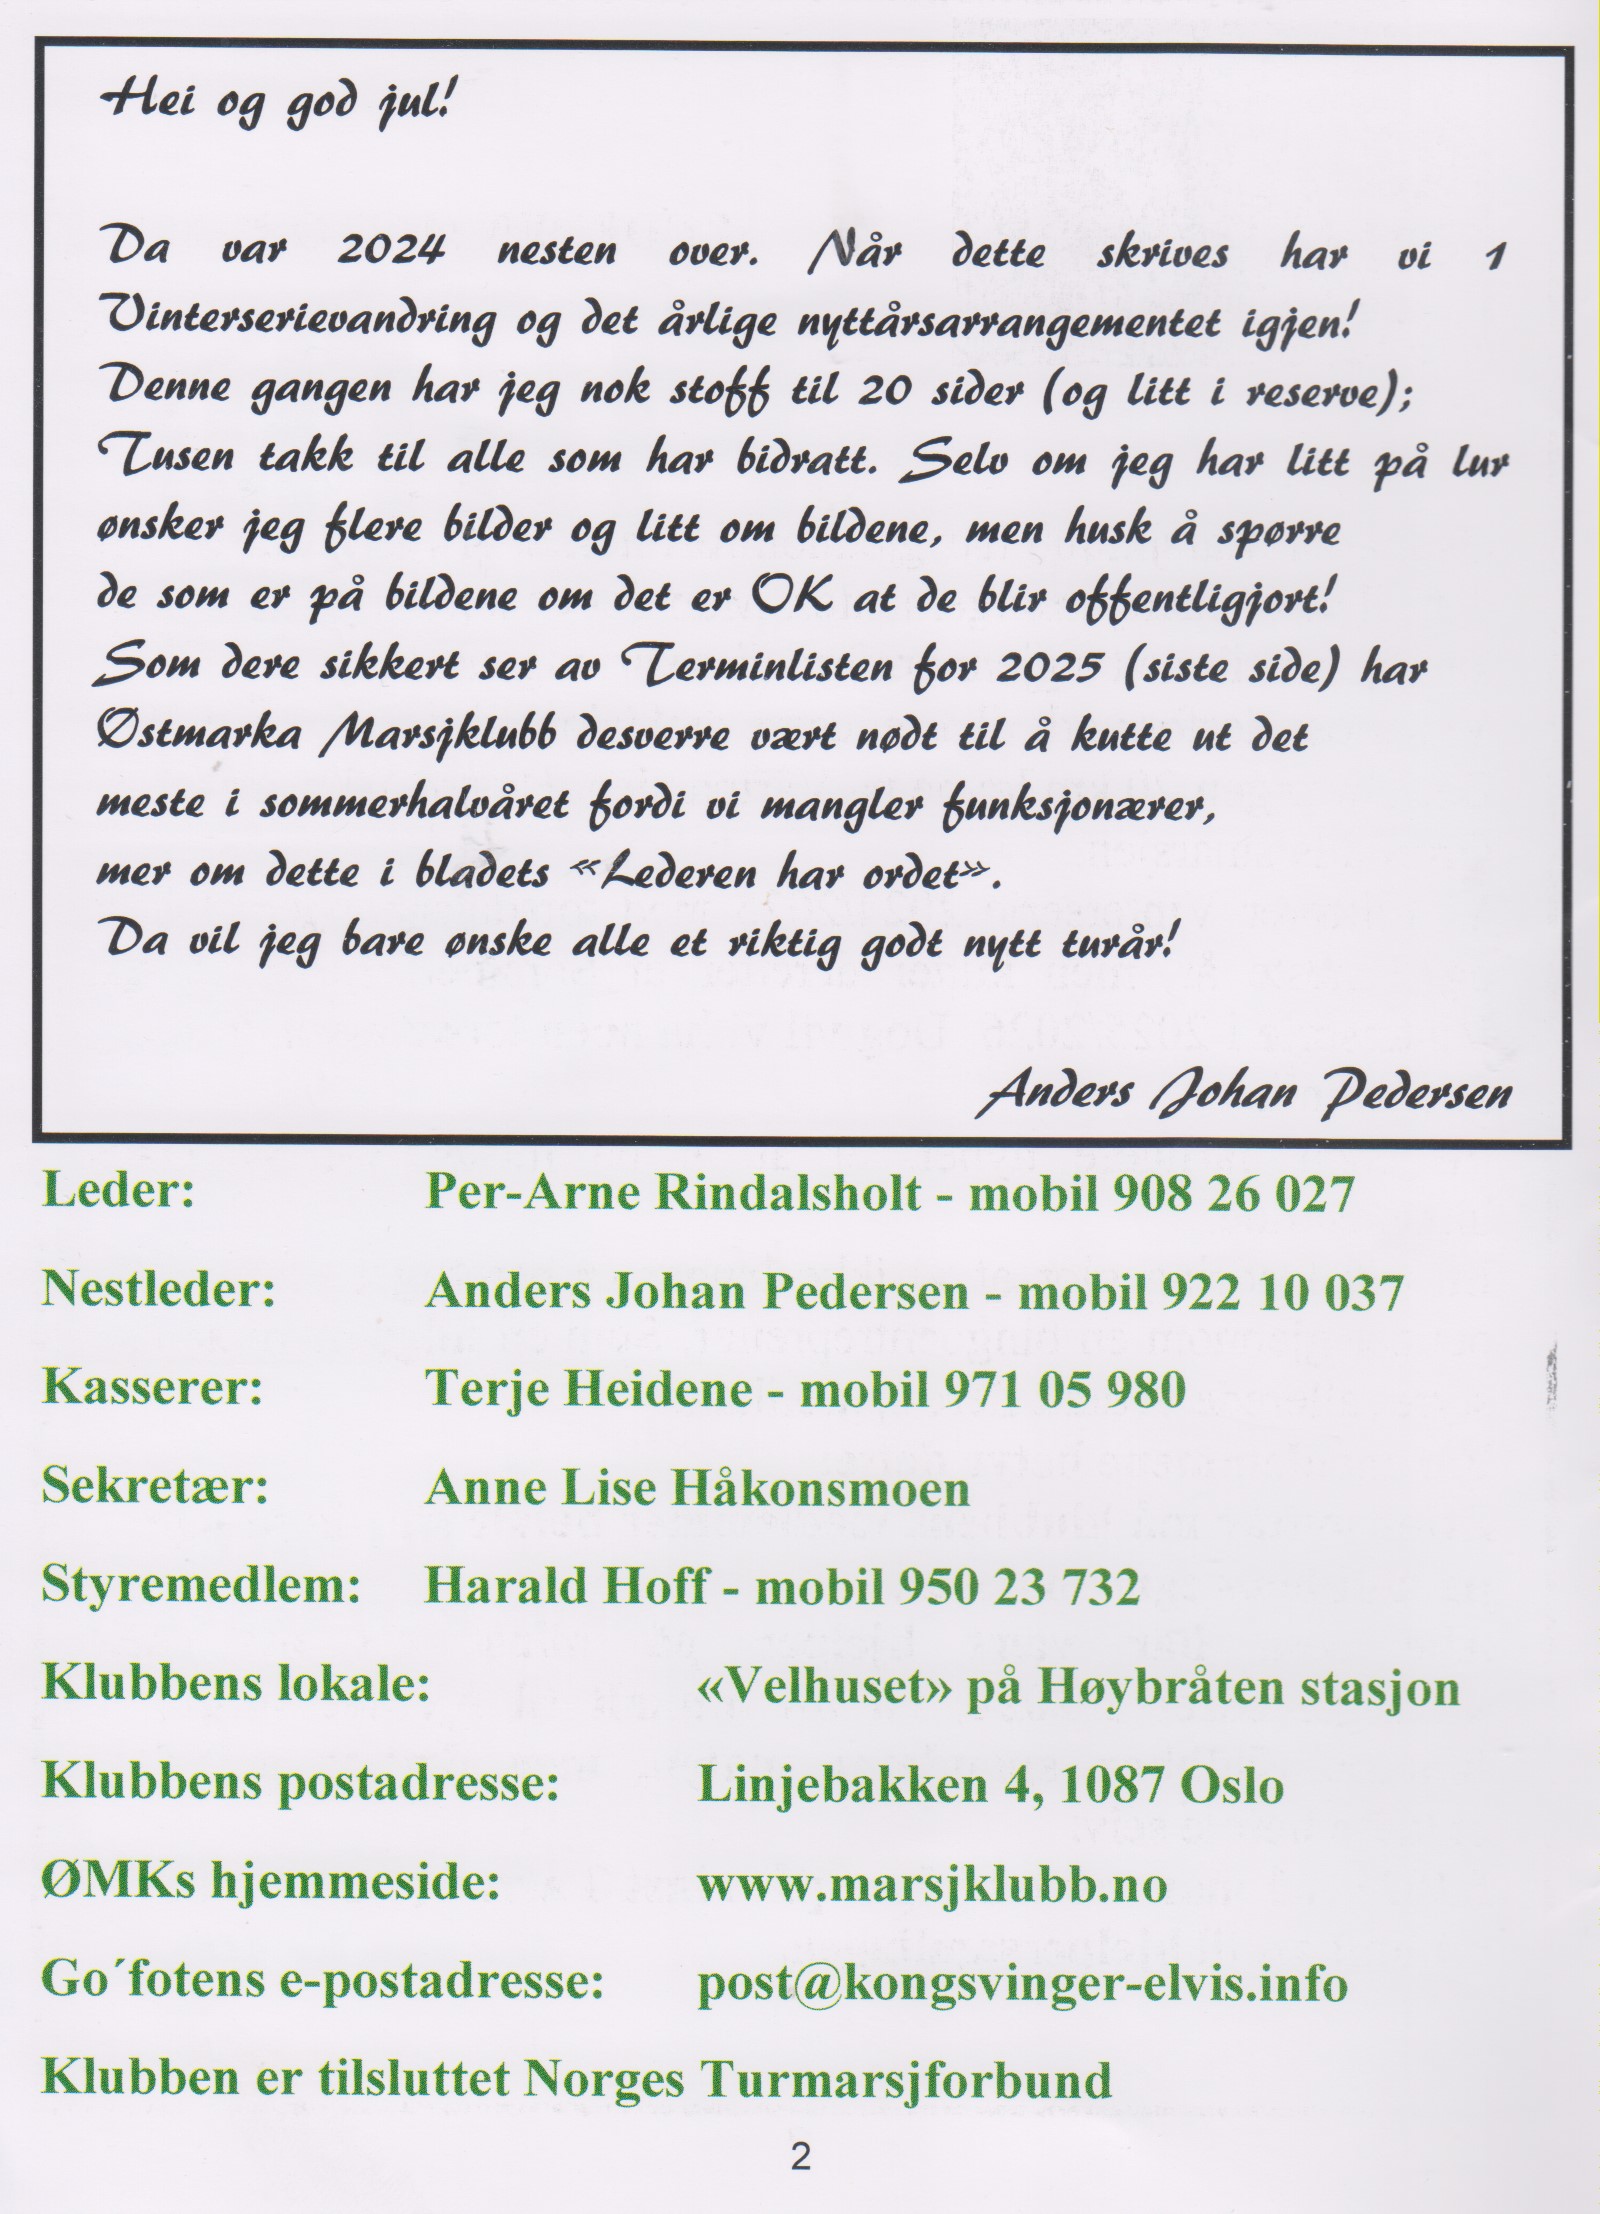 Hei og god jul!
Da var 2024 nesten over. Når dette skrives har vi 1
Vinterserievandring og det årlige nyttårsarrangementet igjen!
Denne gangen har jeg nok stoff til 20 sider (og litt i reserve);
Tusen takk til alle som har bidratt. Selv om jeg har litt på lur
ønsker jeg flere bilder og litt om bildene, men husk å spørre
de som er på bildene om det er OK at de blir offentligjort!
Som dere sikkert ser av Terminlisten for 2025 (siste side) har
Østmarka Marsjklubb desverre vært nødt til å kutte ut det
meste i sommerhalvåret fordi vi mangler funksjonærer,
mer om dette i bladets «Lederen har ordet».
Da vil jeg bare ønske alle et riktig godt nytt turår!
Anders Johan Pedersen
Leder: Per-Arne Rindalsholt - mobil 908 26 027
Nestleder: Anders Johan Pedersen - mobil 922 10 037
Kasserer: Terje Heidene - mobil 971 05 980
Sekretær: Anne Lise Håkonsmoen
Styremedlem: Harald Hoff - mobil 950 23 732
Klubbens lokale: «Velhuset» på Høybråten stasjon
Klubbens postadresse: Linjebakken 4, 1087 Oslo
ØMKs hjemmeside: www.marsjklubb.no
Go´fotens e-postadresse: post@kongsvinger-elvis.info
Klubben er tilsluttet Norges Turmarsjforbund
2